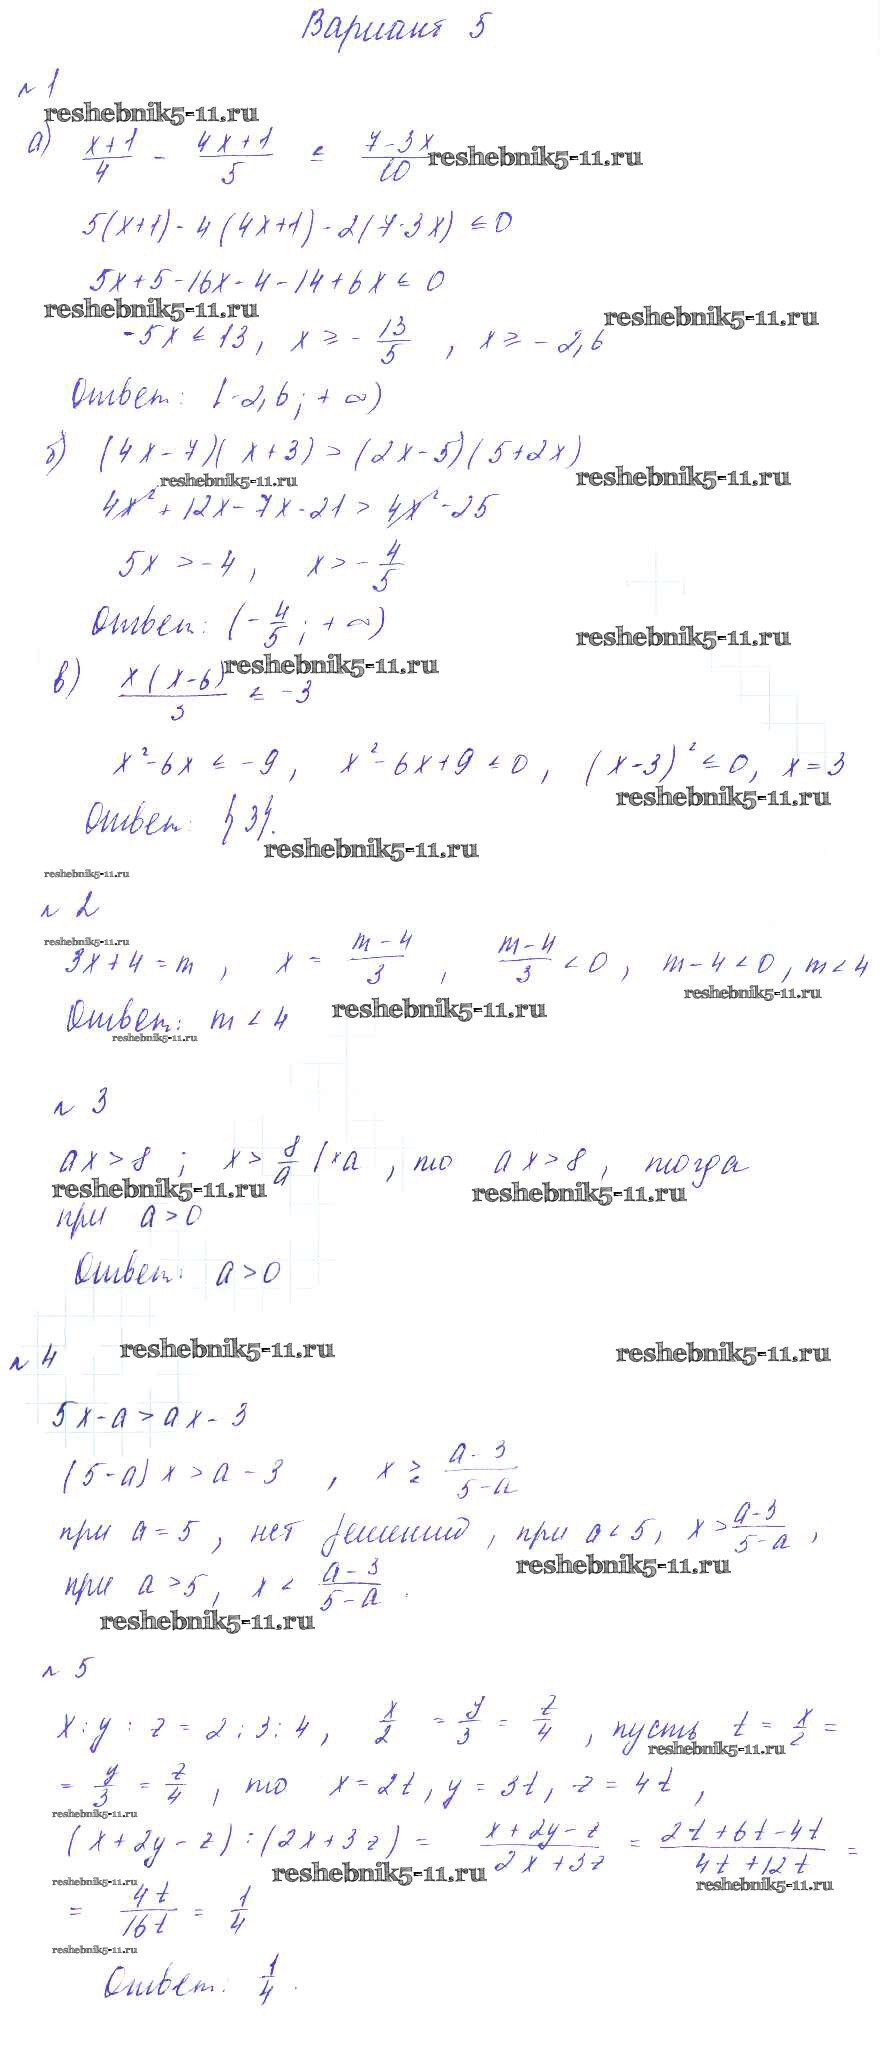 Вариант 5
№ 1
reshebnik5-11.ru
а) (x+1)/4 - (4x+1)/5 ≤ (7-3x)/10 reshebnik5-11.ru
5(x+1) - 4(4x+1) - 2(7-3x) ≤ 0
5x+5-16x-4-14+6x ≤ 0
reshebnik5-11.ru reshebnik5-11.ru
-5x ≤ 13, x ≥ -13/5, x ≥ -2,6
Ответ: [-2,6; +∞)
б) (4x-7)(x+3) > (2x-5)(5+2x)
reshebnik5-11.ru reshebnik5-11.ru
4x²+12x-7x-21 > 4x²-25
5x > -4, x > -4/5
Ответ: (-4/5; +∞)
reshebnik5-11.ru
reshebnik5-11.ru
в) x(x-6)/3 ≤ -3
x²-6x ≤ -9, x²-6x+9 ≤ 0, (x-3)² ≤ 0, x=3
reshebnik5-11.ru
Ответ: {3}.
reshebnik5-11.ru
reshebnik5-11.ru
№ 2
reshebnik5-11.ru
3x+4=m, x = (m-4)/3, (m-4)/3 < 0, m-4<0, m<4
reshebnik5-11.ru
Ответ: m < 4 reshebnik5-11.ru
reshebnik5-11.ru
№ 3
ax>8; x > 8/a |×a, то ax>8, тогда
reshebnik5-11.ru reshebnik5-11.ru
при a>0
Ответ: a>0
№ 4 reshebnik5-11.ru reshebnik5-11.ru
5x-a > ax-3
(5-a)x > a-3, x ≷ (a-3)/(5-a)
при a=5, нет решений, при a<5, x > (a-3)/(5-a),
reshebnik5-11.ru
при a>5, x < (a-3)/(5-a).
reshebnik5-11.ru
№ 5
x:y:z = 2:3:4, x/2 = y/3 = z/4, пусть t = x/2 =
reshebnik5-11.ru
= y/3 = z/4, то x=2t, y=3t, z=4t,
reshebnik5-11.ru
(x+2y-z):(2x+3z) = (x+2y-z)/(2x+3z) = (2t+6t-4t)/(4t+12t) =
reshebnik5-11.ru reshebnik5-11.ru reshebnik5-11.ru
= 4t/16t = 1/4
reshebnik5-11.ru
Ответ: 1/4.